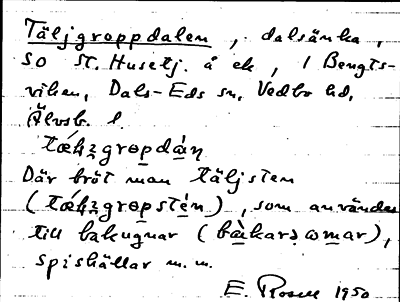 Täljgroppdalen, dalsänka,
SO St. Husetj. å ek, I Bengts-
viken, Dals-Eds sn, Vedbo hd,
Älvsb. l.
Där bröt man täljsten
som användes
till bakugnar
spishällar m.m.
E. Rosell 1950